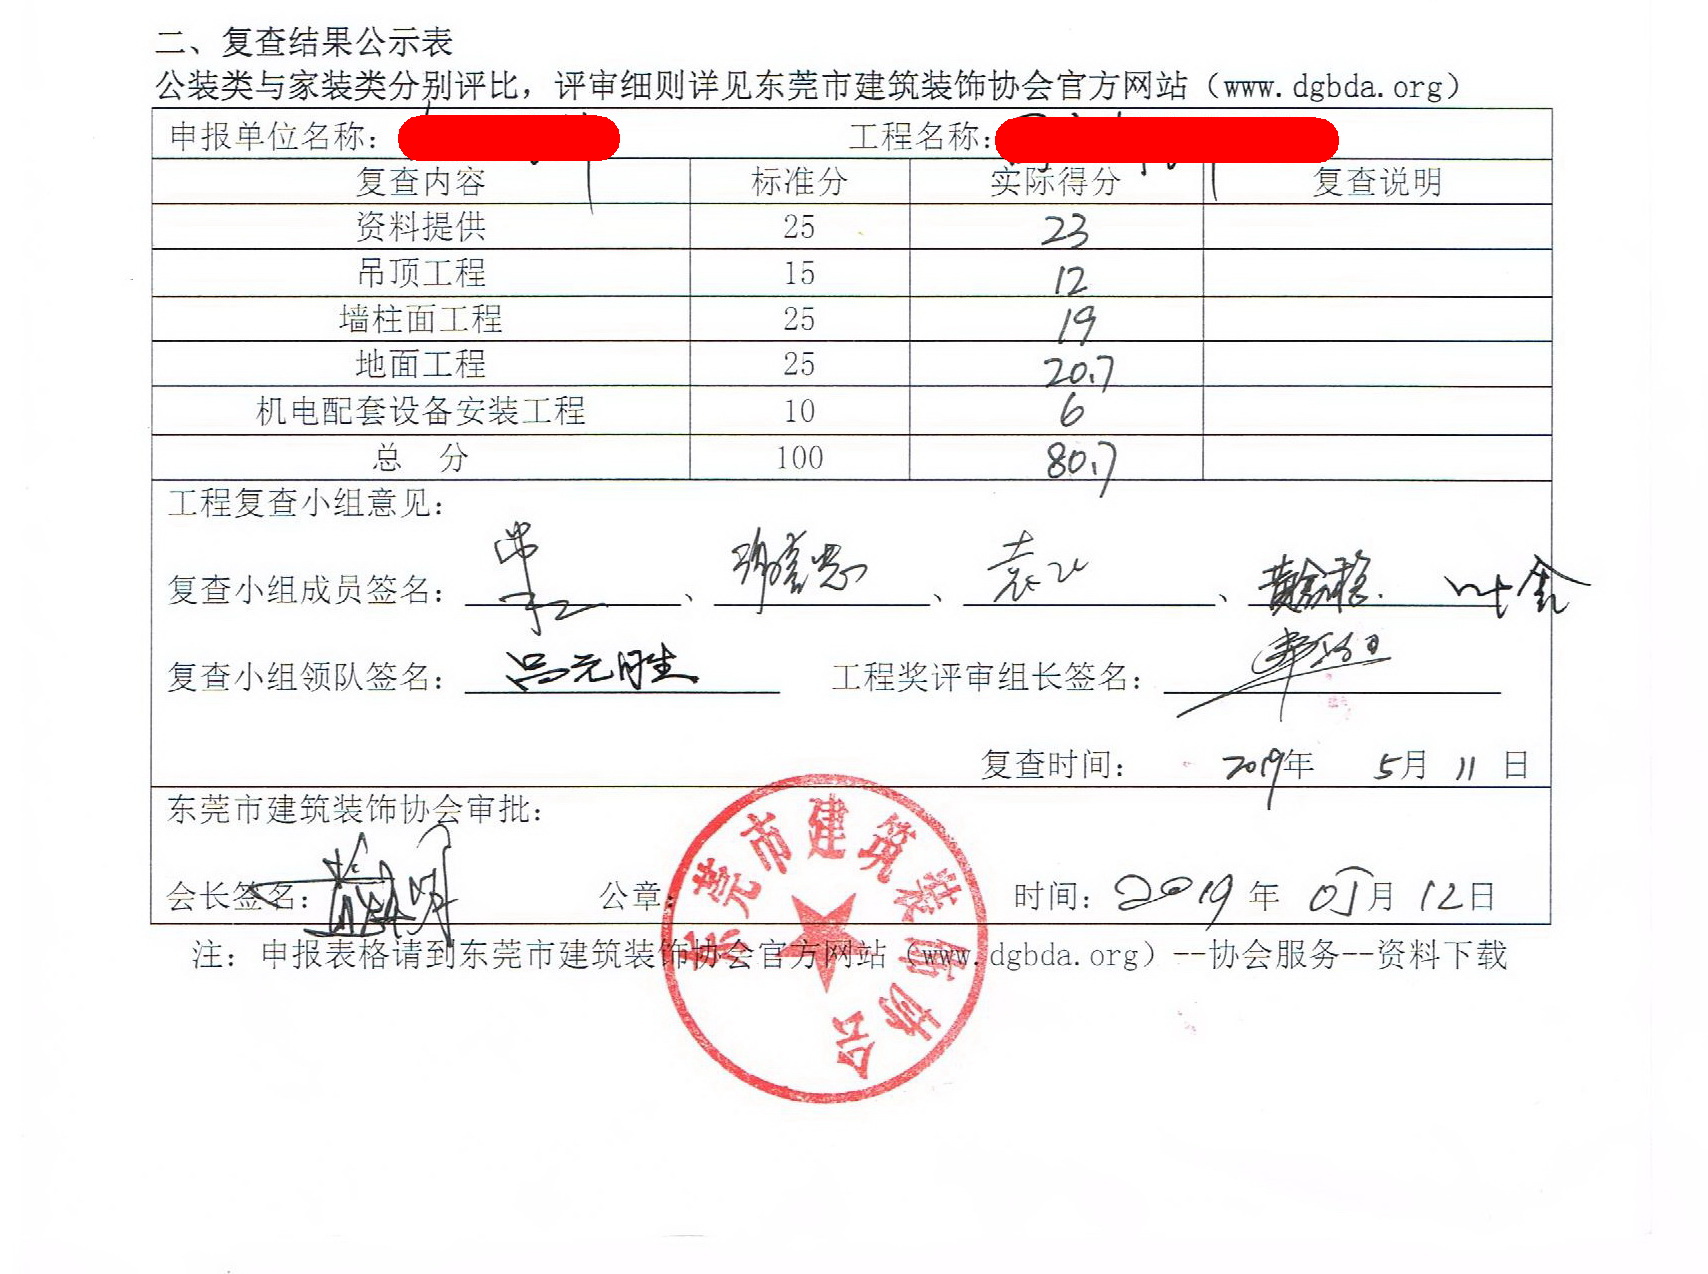 二、复查结果公示表
公装类与家装类分别评比，评审细则详见东莞市建筑装饰协会官方网站（www.dgbda.org）
申报单位名称： 工程名称：
复查内容 标准分 实际得分 复查说明
资料提供 25 23
吊顶工程 15 12
墙柱面工程 25 19
地面工程 25 20.7
机电配套设备安装工程 10 6
总 分 100 80.7
工程复查小组意见：
复查小组成员签名： 、 、 、
复查小组领队签名：吕元胜 工程奖评审组长签名：
复查时间： 2019年 5月 11 日
东莞市建筑装饰协会审批：
会长签名： 公章： 时间：2019 年 05月 12日
东莞市建筑装饰协会
注：申报表格请到东莞市建筑装饰协会官方网站（www.dgbda.org）--协会服务--资料下载